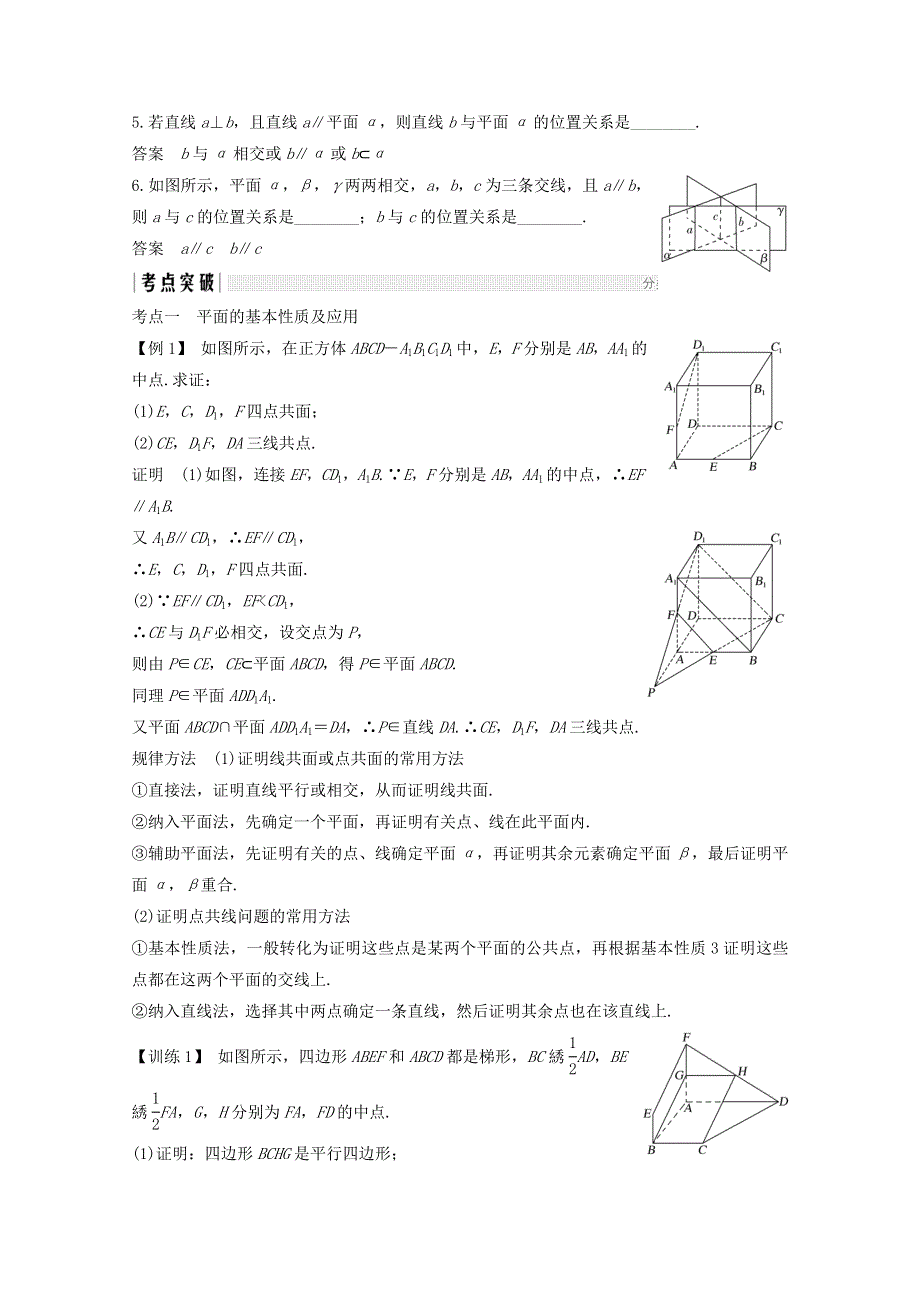 5.若直线a⊥b，且直线a∥平面α，则直线b与平面α的位置关系是________.
答案　b与α相交或b∥α或b⊂α
6.如图所示，平面α，β，γ两两相交，a，b，c为三条交线，且a∥b，
则a与c的位置关系是________；b与c的位置关系是________.
答案　a∥c　b∥c
γ
c
b
a
α
β
考点突破
分
考点一　平面的基本性质及应用
【例1】 如图所示，在正方体ABCD－A₁B₁C₁D₁中，E，F分别是AB，AA₁的
中点.求证：
(1)E，C，D₁，F四点共面；
(2)CE，D₁F，DA三线共点.
D₁
C₁
A₁
B₁
F
D
C
A
E
B
证明　(1)如图，连接EF，CD₁，A₁B.∵E，F分别是AB，AA₁的中点，∴EF
∥A₁B.
又A₁B∥CD₁，∴EF∥CD₁，
∴E，C，D₁，F四点共面.
(2)∵EF∥CD₁，EF<CD₁，
∴CE与D₁F必相交，设交点为P，
则由P∈CE，CE⊂平面ABCD，得P∈平面ABCD.
同理P∈平面ADD₁A₁.
又平面ABCD∩平面ADD₁A₁＝DA，∴P∈直线DA.∴CE，D₁F，DA三线共点.
D₁
C₁
A₁
B₁
F
D
C
A
E
B
P
规律方法　(1)证明线共面或点共面的常用方法
①直接法，证明直线平行或相交，从而证明线共面.
②纳入平面法，先确定一个平面，再证明有关点、线在此平面内.
③辅助平面法，先证明有关的点、线确定平面α，再证明其余元素确定平面β，最后证明平
面α，β重合.
(2)证明点共线问题的常用方法
①基本性质法，一般转化为证明这些点是某两个平面的公共点，再根据基本性质3证明这些
点都在这两个平面的交线上.
②纳入直线法，选择其中两点确定一条直线，然后证明其余点也在该直线上.
【训练1】 如图所示，四边形ABEF和ABCD都是梯形，BC綉1/2AD，BE
綉1/2FA，G，H分别为FA，FD的中点.
(1)证明：四边形BCHG是平行四边形；
F
G
H
A
D
E
B
C